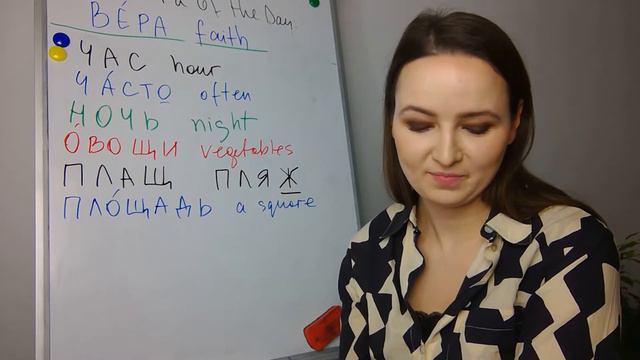 of the Day
ВÉРА faith
ЧАС hour
ЧÁСТО often
НОЧЬ night
ÓВОЩИ vegetables
ПЛАЩ ПЛЯЖ
ПЛÓЩАДЬ a square